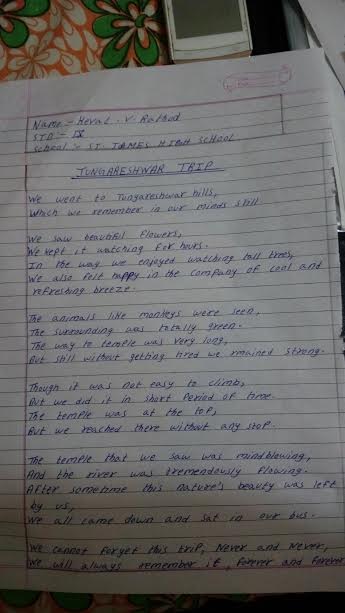 Name :- Heval . V . Rathod
STD :- IX
School :- ST. JAMES HIGH SCHOOL
TUNGARESHWAR TRIP
We went to Tungareshwar hills,
Which we remember in our minds still
We saw beautiful flowers,
We kept it watching for hours.
In the way we enjoyed watching tall trees,
We also felt happy in the company of cool and
refreshing breeze.
The animals like monkeys were seen,
The surrounding was totally green.
The way to temple was very long,
But still without getting tired we rmained strong.
Though it was not easy to climb,
But we did it in short period of time.
The temple was at the top,
But we reached there without any stop.
The temple that we saw was mindblowing,
And the river was tremendously flowing.
After sometime this nature's beauty was left
by us,
We all came down and sat in our bus.
We cannot forget this trip, Never and Never,
We will always remember it, forever and forever